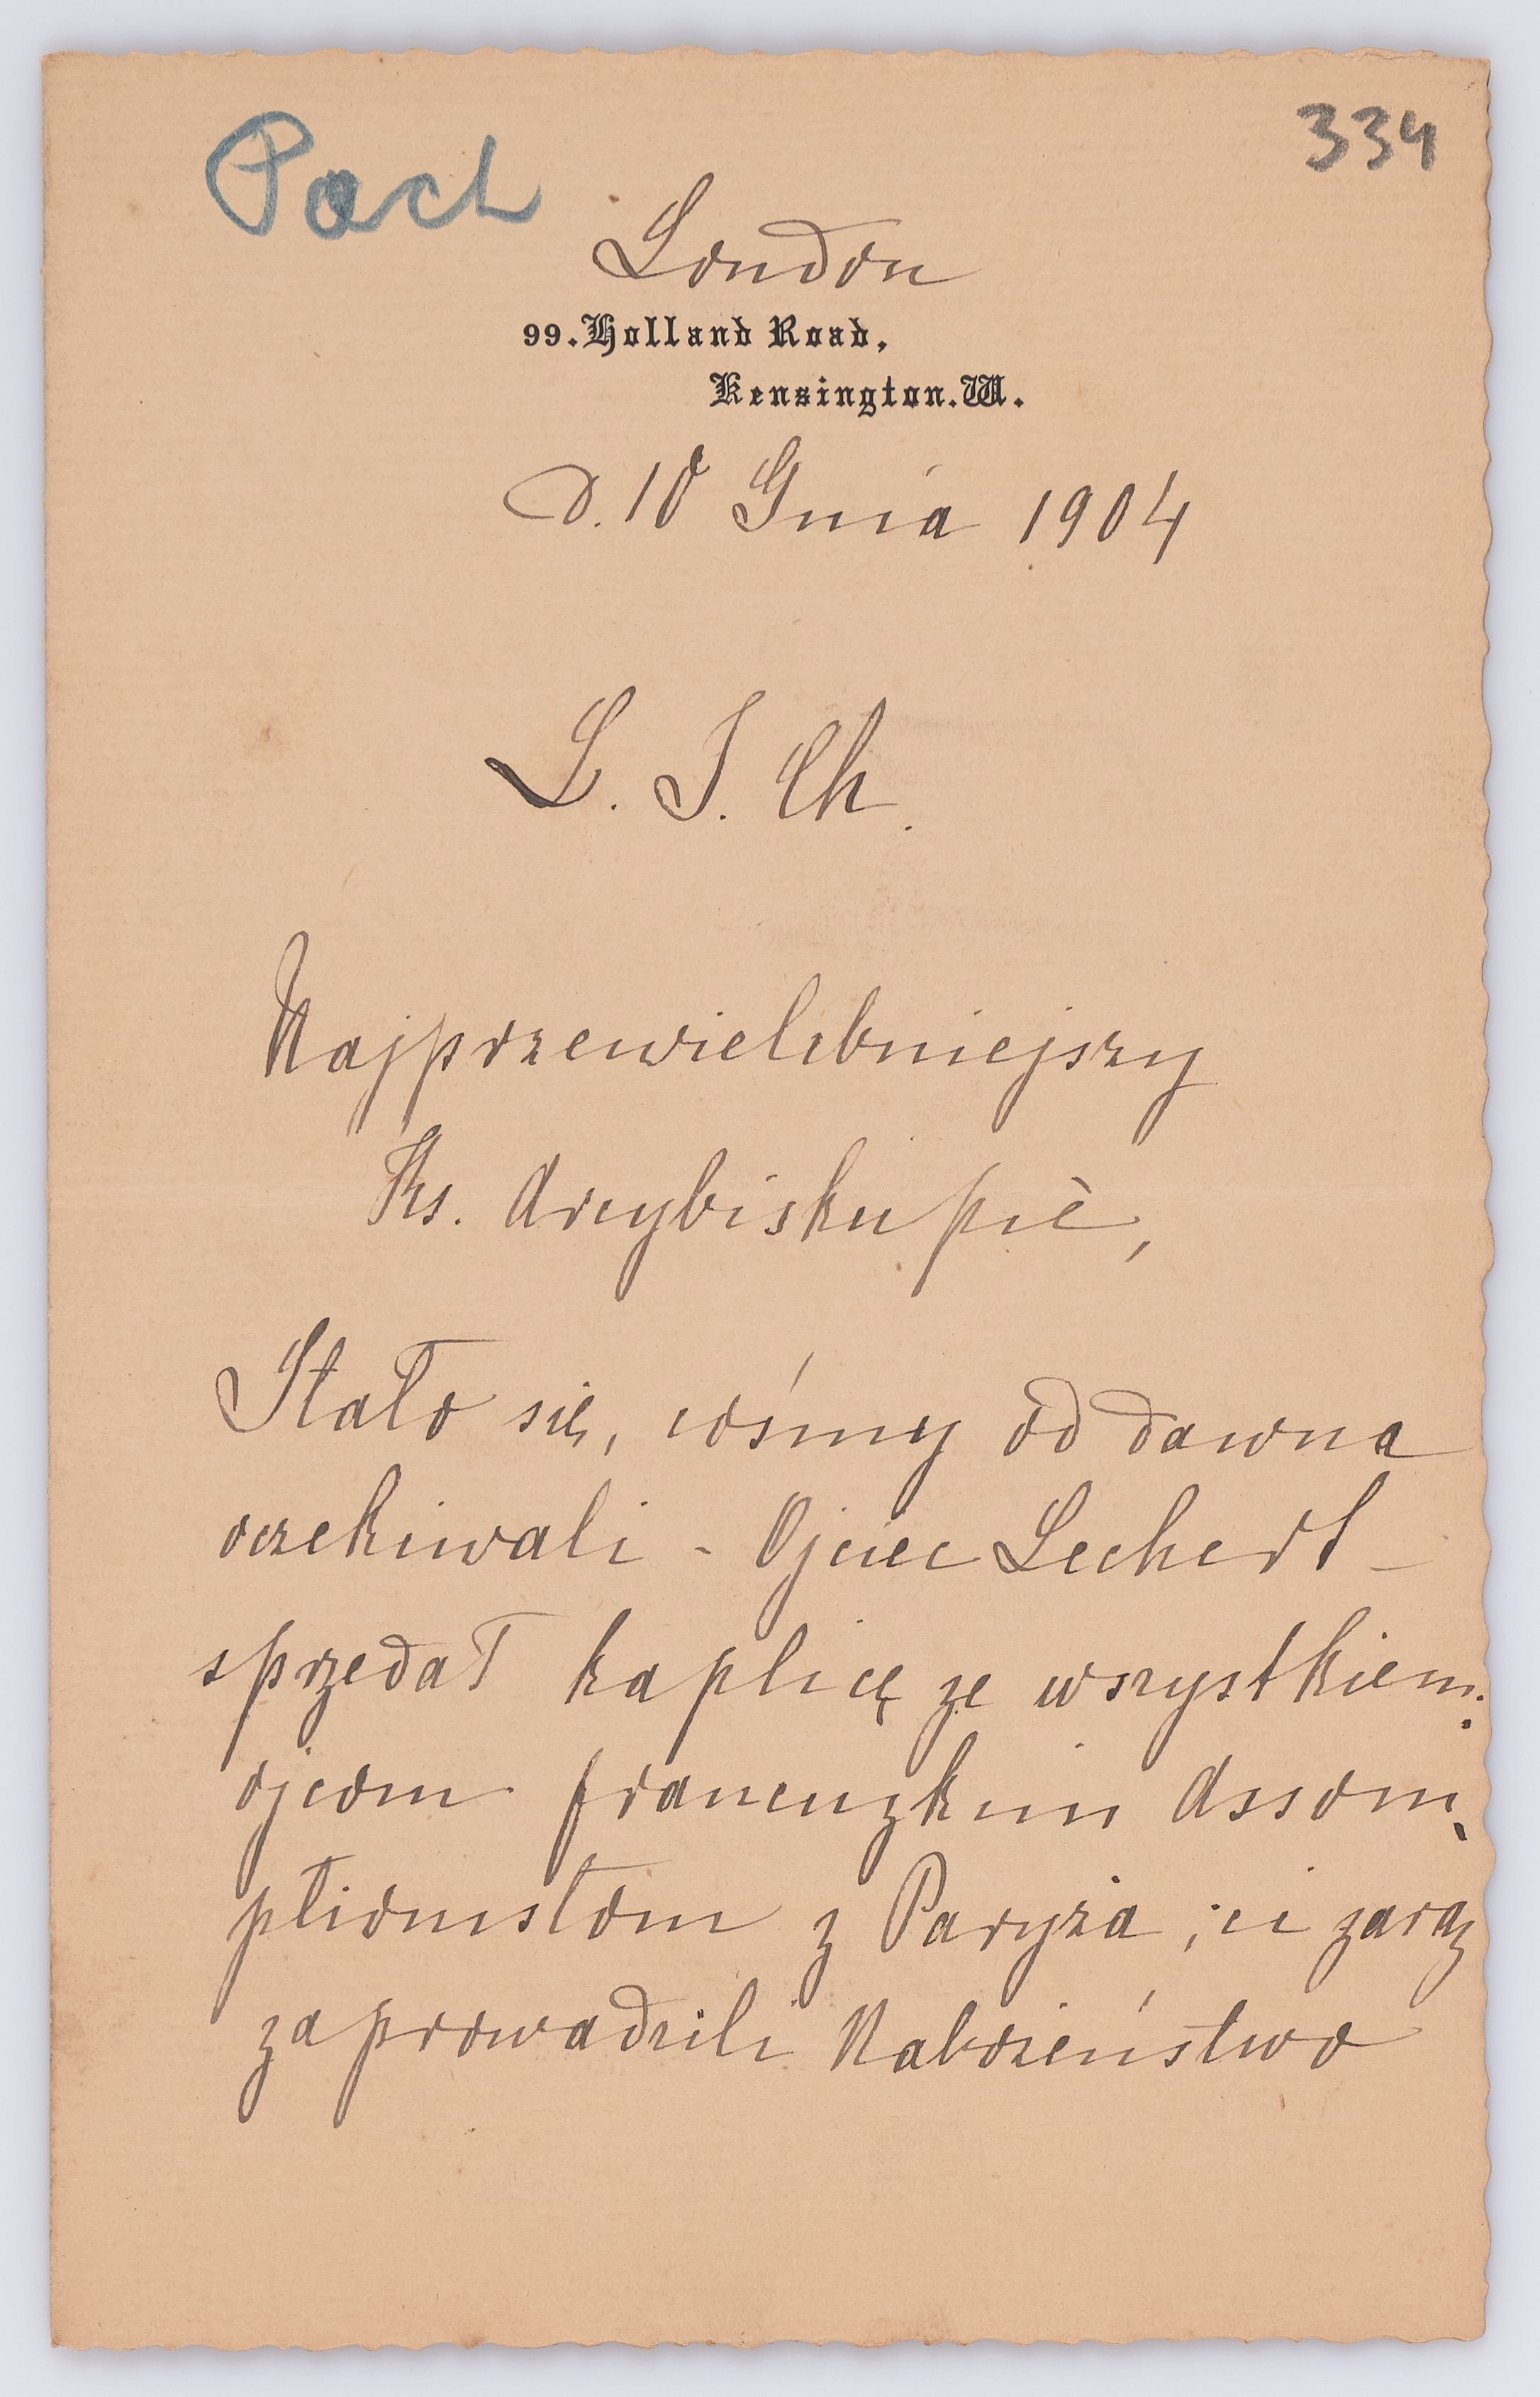 Pach
334
London
99. Holland Road,
Kensington. W.
d. 10 Gnia 1904
L. J. Ch.
Najprzewielebniejszy
Ks. Arcybiskupie,
Stało się, cośmy od dawna
oczekiwali - Ojciec Lechert -
sprzedał kaplicę ze wszystkiem
ojcom francuzkim Assom-
ptionistom z Paryża; ci zaraz
zaprowadzili Nabożeństwo